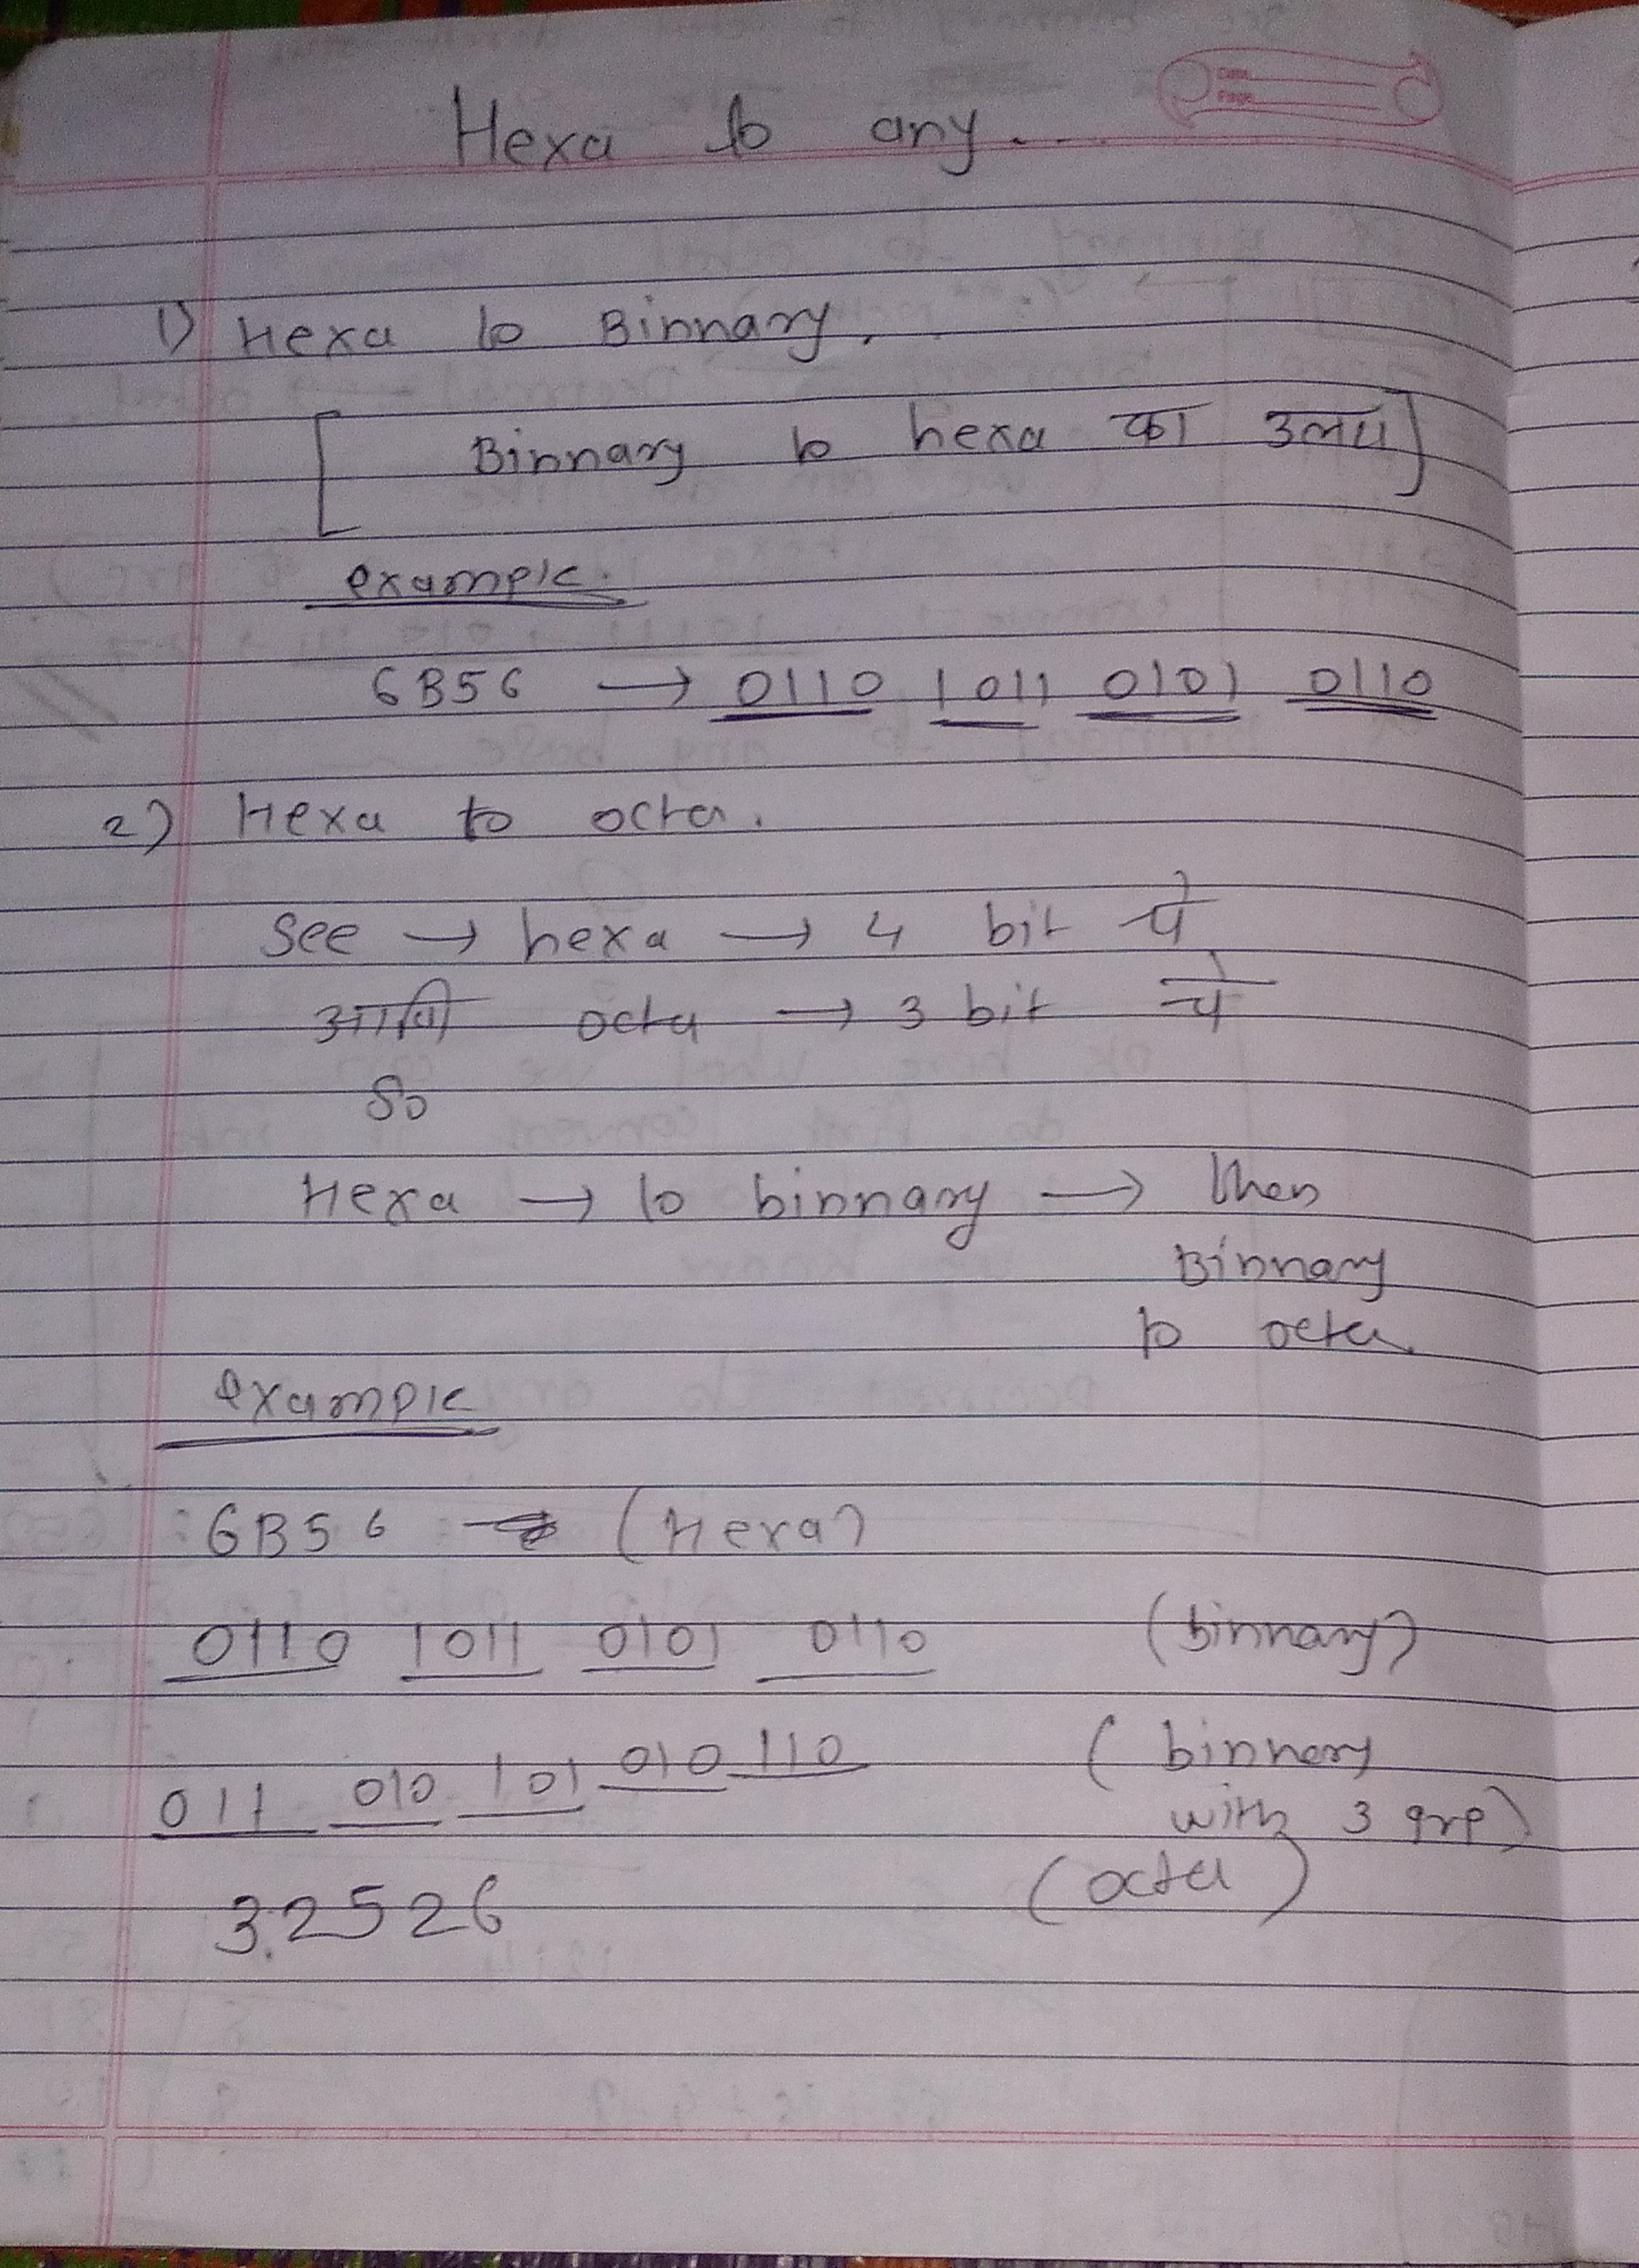 Date
Page
Hexa to any....
1) Hexa to Binnary.
[ Binnary to hexa का उलटा ]
example.
6B56 → 0110 1011 0101 0110
2) Hexa to octa.
See → hexa → 4 bit पे
आणि octa → 3 bit पे
So
Hexa → to binnary → then
Binnary
to octa.
example
6B56 (Hexa)
0110 1011 0101 0110 (binnary)
011 010 101 010 110 (binnery
with 3 grp)
32526 (octa)